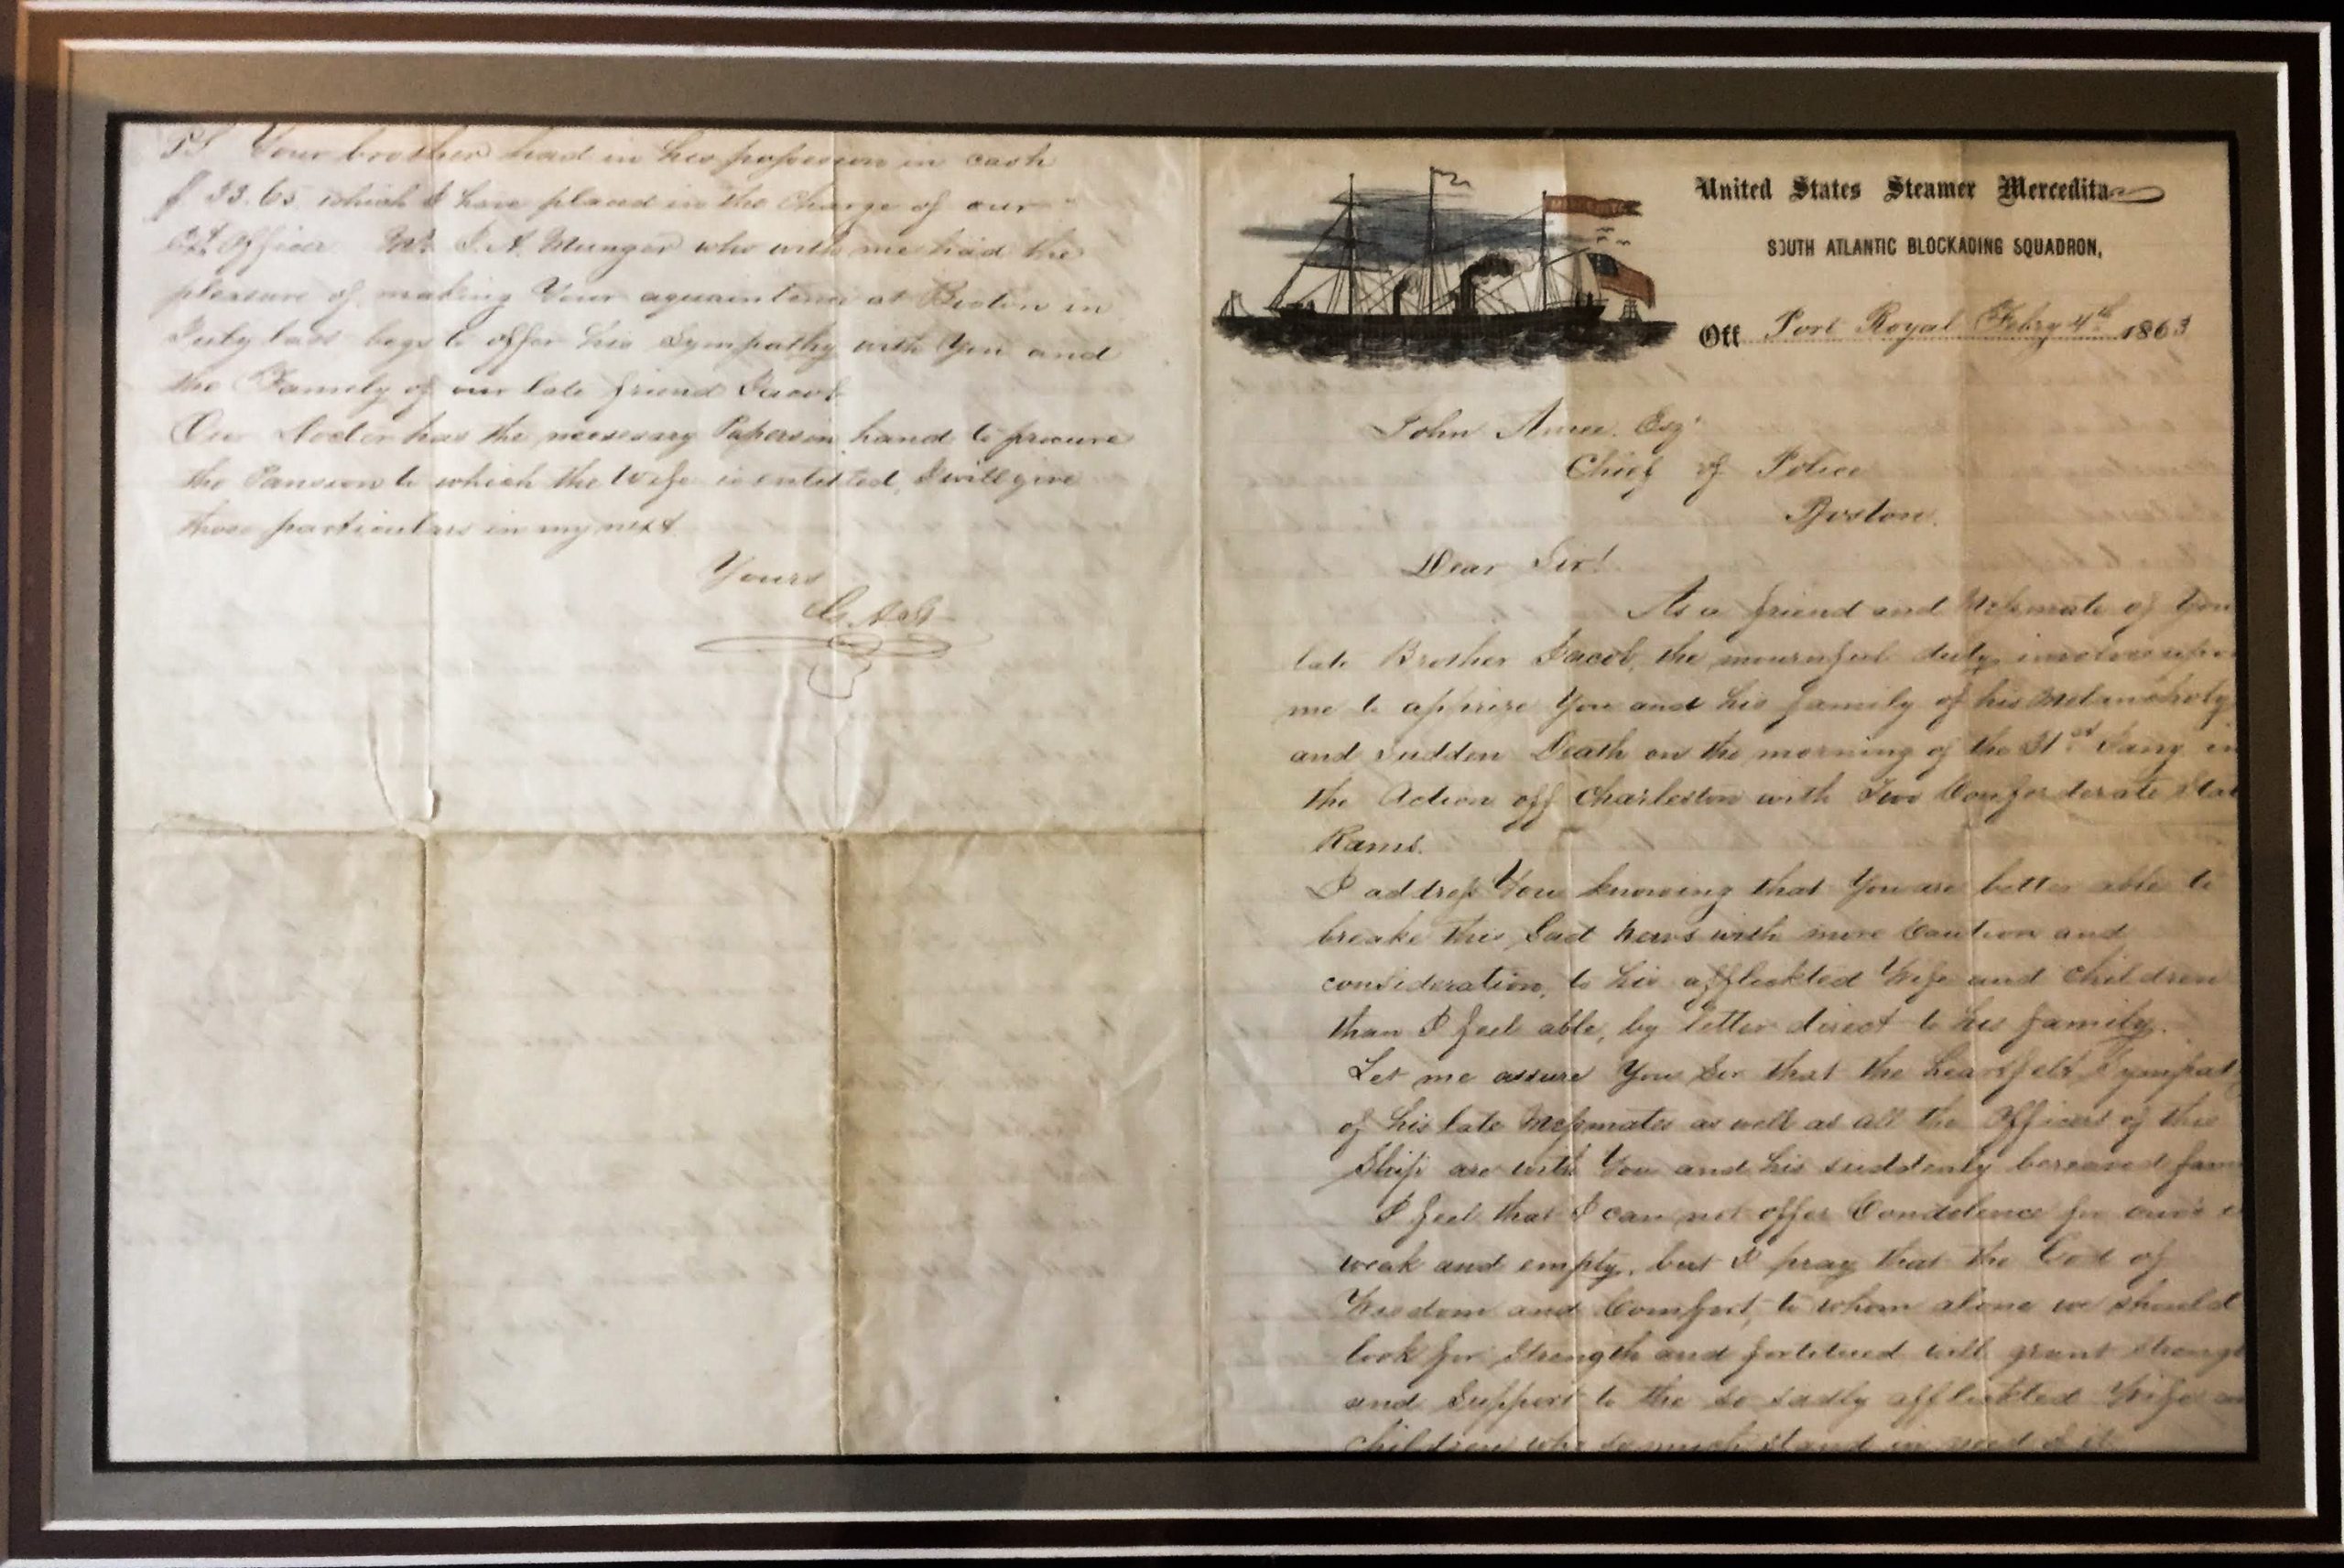 PS Your brother had in his possession in cash
$ 33.65 which I have placed in the Charge of our
Officer Mr. J. A. Munger who with me had the
pleasure of making Your aquaintence at Boston in
July last begs to offer his Sympathy with You and
the Family of our late friend Jacob.
Our Doctor has the necessary Papers in hand to procure
the Pansion to which the Wife is entitled, I will give
those particulars in my next
Yours
United States Steamer Mercedita
SOUTH ATLANTIC BLOCKADING SQUADRON,
Off Port Royal Febry 4th 1863
John Amee. Esqr
Chief of Police
Boston.
Dear Sir!
As a friend and Messmate of You
late Brother Jacob, the mournful duty involves upon
me to apprise You and his family of his Melancholy
and sudden Death on the morning of the 31st Jany in
the Action off Charleston with Two Confederate Stat
Rams.
I address You knowing that You are better able to
breake this Sad News with more Caution and
consideration, to his afflickted Wife and Children
than I feel able, by letter direct to his family.
Let me assure You Sir that the heartfelt Sympat
of his late Messmates as well as all the Officers of this
Ship are with You and his suddenly bereaved fam
I feel that I can not offer Condolence for our's
weak and empty, but I pray that the God of
Wisdom and Comfort, to whom alone we should
look for Strength and fortitued will grant strengt
and Support to the so sadly afflickted Wife
Children who so much stand in need of it